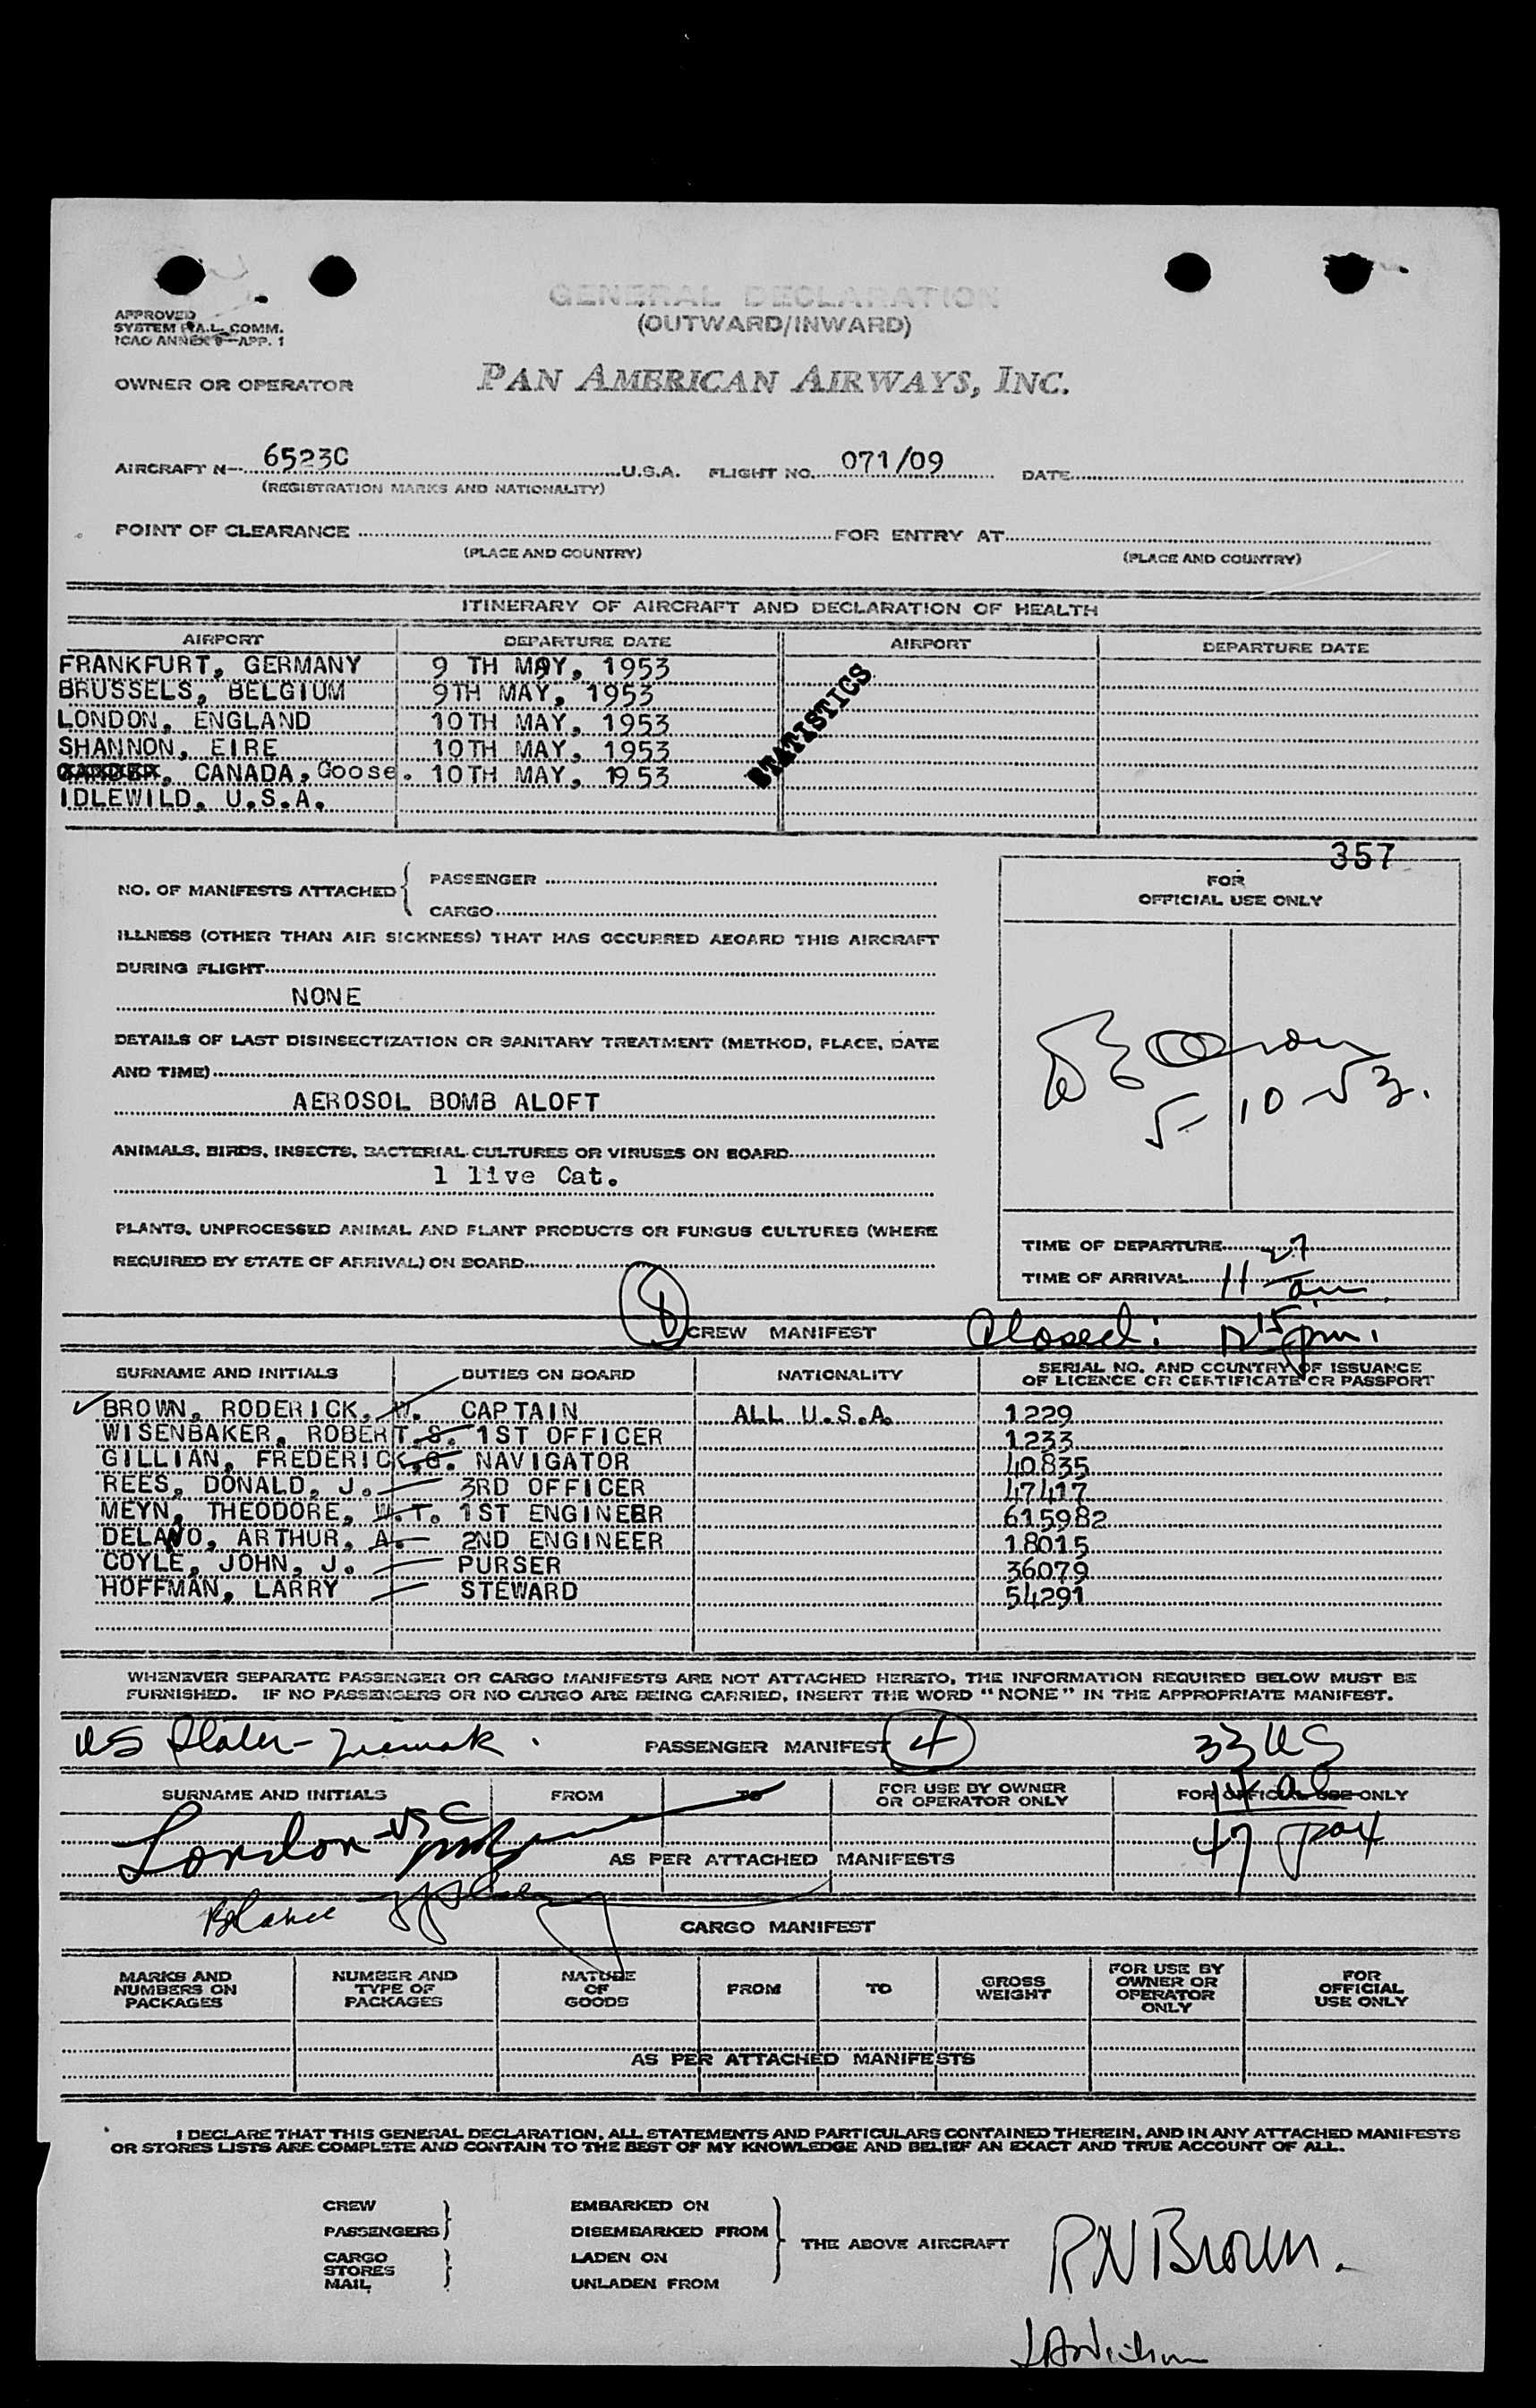 GENERAL DECLARATION
(OUTWARD/INWARD)
APPROVED
SYSTEM F.A.L. COMM.
ICAO ANNEX 9—APP. 1
OWNER OR OPERATOR PAN AMERICAN AIRWAYS, INC.
AIRCRAFT N— 6523C U.S.A. FLIGHT NO. 071/09 DATE
(REGISTRATION MARKS AND NATIONALITY)
POINT OF CLEARANCE FOR ENTRY AT
(PLACE AND COUNTRY) (PLACE AND COUNTRY)
ITINERARY OF AIRCRAFT AND DECLARATION OF HEALTH
AIRPORT DEPARTURE DATE AIRPORT DEPARTURE DATE
FRANKFURT, GERMANY 9 TH MAY, 1953
BRUSSELS, BELGIUM 9TH MAY, 1953
LONDON, ENGLAND 10TH MAY, 1953
SHANNON, EIRE 10TH MAY, 1953
GANDER, CANADA, Goose. 10TH MAY, 1953
IDLEWILD, U.S.A.
STATISTICS
357
NO. OF MANIFESTS ATTACHED { PASSENGER
CARGO
FOR
OFFICIAL USE ONLY
ILLNESS (OTHER THAN AIR SICKNESS) THAT HAS OCCURRED ABOARD THIS AIRCRAFT
DURING FLIGHT
NONE
DETAILS OF LAST DISINSECTIZATION OR SANITARY TREATMENT (METHOD, PLACE, DATE
AND TIME)
AEROSOL BOMB ALOFT
5-10-53.
ANIMALS, BIRDS, INSECTS, BACTERIAL CULTURES OR VIRUSES ON BOARD
1 live Cat.
PLANTS, UNPROCESSED ANIMAL AND PLANT PRODUCTS OR FUNGUS CULTURES (WHERE
REQUIRED BY STATE OF ARRIVAL) ON BOARD
TIME OF DEPARTURE
TIME OF ARRIVAL 11 27 am
8 CREW MANIFEST Closed: 12 15 pm.
SURNAME AND INITIALS DUTIES ON BOARD NATIONALITY SERIAL NO. AND COUNTRY OF ISSUANCE
OF LICENCE OR CERTIFICATE OR PASSPORT
BROWN, RODERICK, W. CAPTAIN ALL U.S.A. 1229
WISENBAKER, ROBERT, S. 1ST OFFICER 1233
GILLIAN, FREDERICK, G. NAVIGATOR 40835
REES, DONALD, J. 3RD OFFICER 47417
MEYN, THEODORE, W.T. 1ST ENGINEER 615982
DELANO, ARTHUR, A. 2ND ENGINEER 18015
COYLE, JOHN, J. PURSER 36079
HOFFMAN, LARRY STEWARD 54291
WHENEVER SEPARATE PASSENGER OR CARGO MANIFESTS ARE NOT ATTACHED HERETO, THE INFORMATION REQUIRED BELOW MUST BE
FURNISHED. IF NO PASSENGERS OR NO CARGO ARE BEING CARRIED, INSERT THE WORD "NONE" IN THE APPROPRIATE MANIFEST.
US PASSENGER MANIFEST 4 33 US
SURNAME AND INITIALS FROM TO FOR USE BY OWNER
OR OPERATOR ONLY FOR OFFICIAL USE ONLY
14 al
London 47 pax
AS PER ATTACHED MANIFESTS
Balance
CARGO MANIFEST
MARKS AND
NUMBERS ON
PACKAGES NUMBER AND
TYPE OF
PACKAGES NATURE
OF
GOODS FROM TO GROSS
WEIGHT FOR USE BY
OWNER OR
OPERATOR
ONLY FOR
OFFICIAL
USE ONLY
AS PER ATTACHED MANIFESTS
I DECLARE THAT THIS GENERAL DECLARATION, ALL STATEMENTS AND PARTICULARS CONTAINED THEREIN, AND IN ANY ATTACHED MANIFESTS
OR STORES LISTS ARE COMPLETE AND CONTAIN TO THE BEST OF MY KNOWLEDGE AND BELIEF AN EXACT AND TRUE ACCOUNT OF ALL.
CREW EMBARKED ON
PASSENGERS DISEMBARKED FROM
THE ABOVE AIRCRAFT
CARGO LADEN ON
STORES
MAIL UNLADEN FROM
RW Brown.